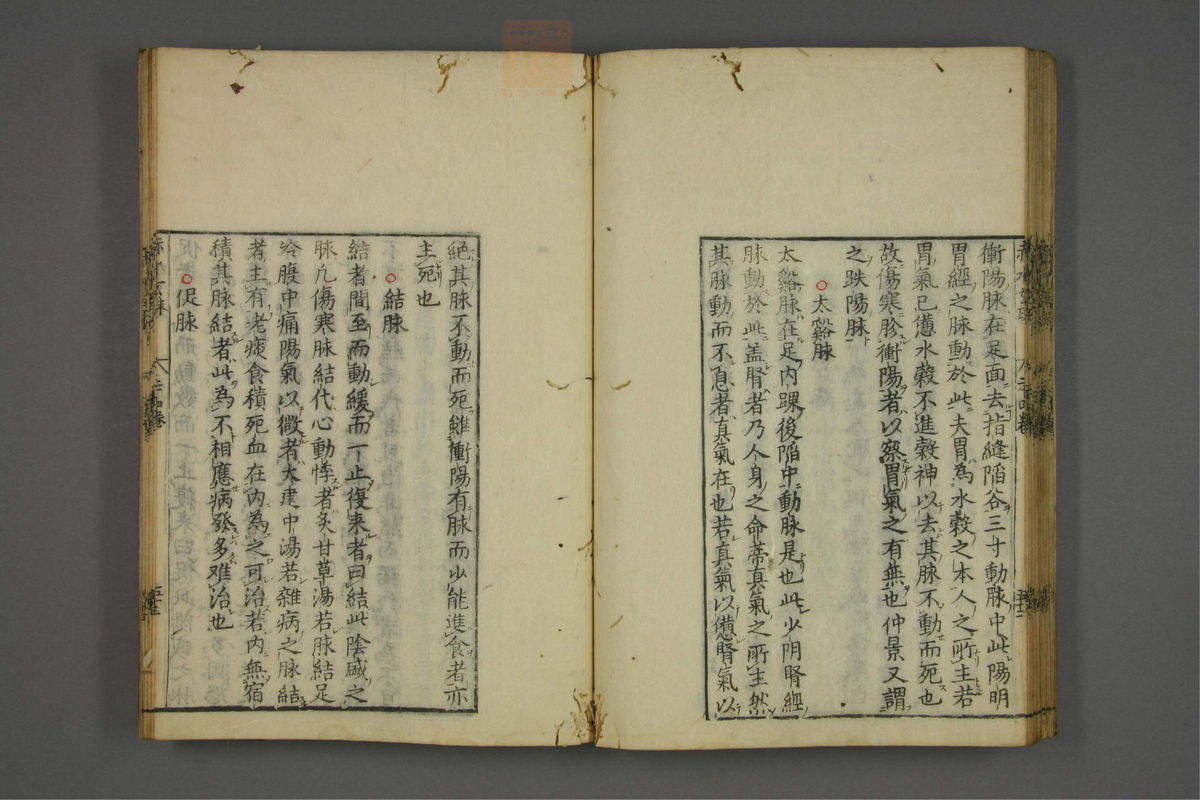 衝陽脉在足面去指縫陥谷三寸動脉中此陽明
胃經之脉動於此夫胃為水穀之本人之所主若
胃氣已憊水穀不進穀神以去其脉不動而死也
故傷寒胗衝陽者以察胃氣之有無也仲景又謂
之趺陽脉
○太谿脉
太谿脉在足内踝後陥中動脉是也此少阴腎經
脉動於此盖腎者乃人身之命蒂真氣之所主然
其脉動而不息者真氣在也若真氣以憊腎氣以
絕其脉不動而死雖衝陽有脉而少能進食者亦
主死也
○結脉
結者間至而動緩而一止復来者曰結此陰盛之
脉凢傷寒脉結代心動悸者炙甘草湯若脉結足
冷腹中痛陽氣以微者大建中湯若雜病之脉結
者主有老痰食積死血在内為之可治若内無宿
積其脉結者此為不相應病發多难治也
○促脉